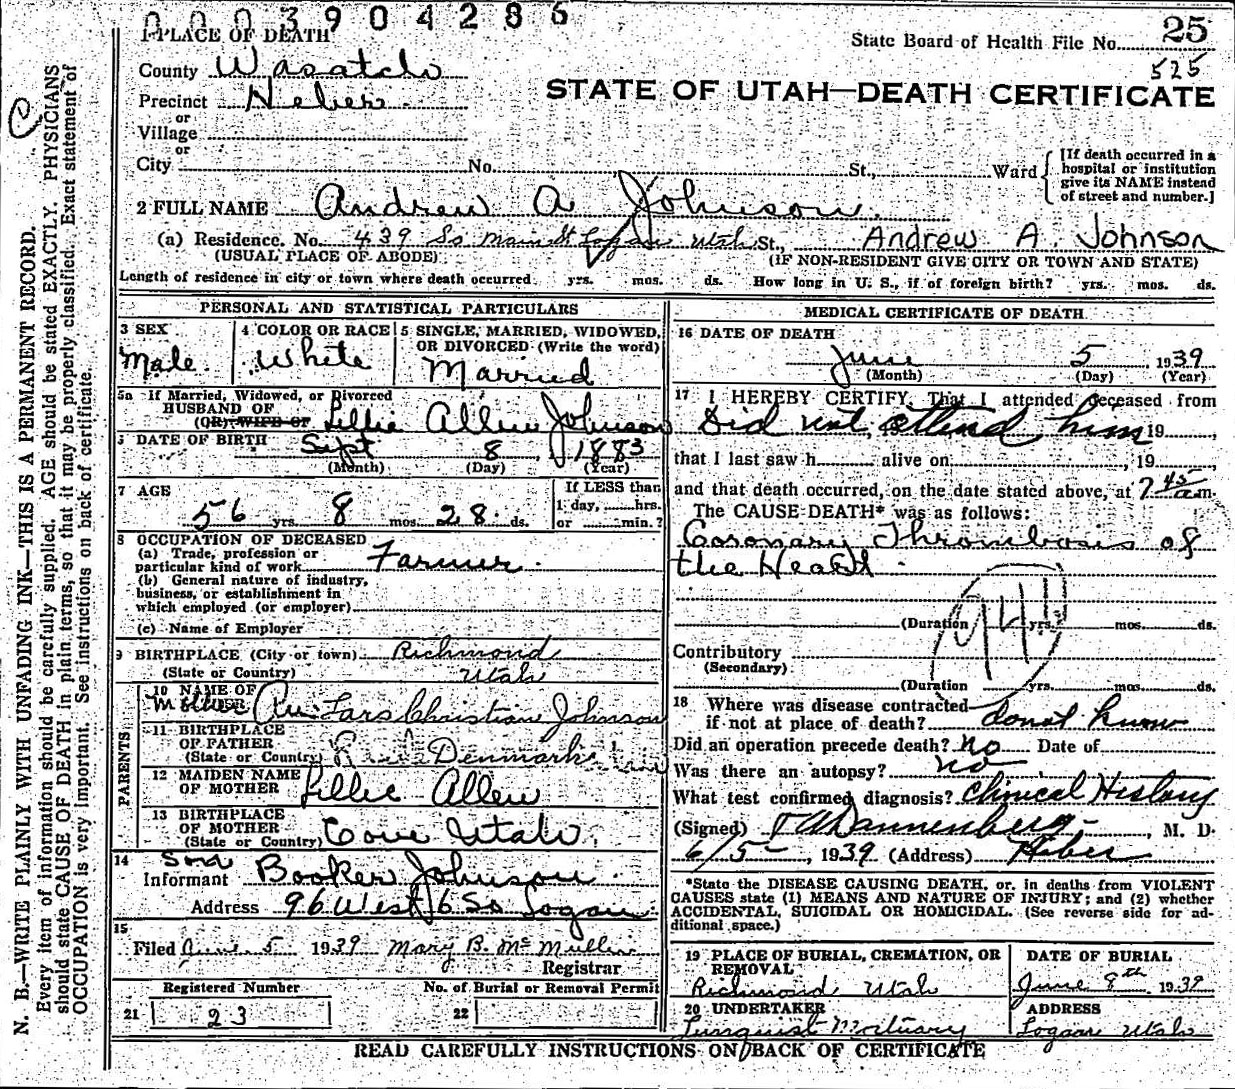 0003904286
1 PLACE OF DEATH
County Wasatch
Precinct Heber
or
Village
or
City No. St., Ward
State Board of Health File No. 25
525
STATE OF UTAH—DEATH CERTIFICATE
[If death occurred in a
hospital or institution
give its NAME instead
of street and number.]
2 FULL NAME Andrew A Johnson.
(a) Residence. No. 439 So Main St Logan Utah St., Andrew A. Johnson
(USUAL PLACE OF ABODE) (IF NON-RESIDENT GIVE CITY OR TOWN AND STATE)
Length of residence in city or town where death occurred yrs. mos. ds. How long in U. S., if of foreign birth? yrs. mos. ds.
PERSONAL AND STATISTICAL PARTICULARS
3 SEX
Male
4 COLOR OR RACE
White
5 SINGLE, MARRIED, WIDOWED,
OR DIVORCED (Write the word)
Married
5a If Married, Widowed, or Divorced
HUSBAND OF
(OR) WIFE OF Lillie Allen Johnson
6 DATE OF BIRTH Sept 8, 1883
(Month) (Day) (Year)
7 AGE
56 yrs. 8 mos. 28 ds.
If LESS than
1 day, hrs.
or min.?
8 OCCUPATION OF DECEASED
(a) Trade, profession or
particular kind of work Farmer.
(b) General nature of industry,
business, or establishment in
which employed (or employer)
(c) Name of Employer
9 BIRTHPLACE (City or town) Richmond
(State or Country) Utah
PARENTS
10 NAME OF
Lars Christian Johnson
11 BIRTHPLACE
OF FATHER
(State or Country) Denmark
12 MAIDEN NAME
OF MOTHER Lillie Allen
13 BIRTHPLACE
OF MOTHER
(State or Country) Cove Utah.
14 Son
Informant Booker Johnson
Address 96 West 6 So Logan
15
Filed June 5 1939 Mary B. McMullin
Registrar
Registered Number No. of Burial or Removal Permit
21 23 22
MEDICAL CERTIFICATE OF DEATH
16 DATE OF DEATH
June 5, 1939
(Month) (Day) (Year)
17 I HEREBY CERTIFY, That I attended deceased from
Did not attend him 19
that I last saw h alive on , 19
and that death occurred, on the date stated above, at 7 45 a m.
The CAUSE DEATH* was as follows:
Coronary Thrombosis of
the Heart.
94
(Duration yrs. mos. ds.
Contributory
(Secondary)
(Duration yrs. mos. ds.
18 Where was disease contracted
if not at place of death? donot know
Did an operation precede death? no Date of
Was there an autopsy? no
What test confirmed diagnosis? Clinical History
(Signed) Dannenberg, M. D.
6/5—, 1939 (Address) Heber
*State the DISEASE CAUSING DEATH, or, in deaths from VIOLENT
CAUSES state (1) MEANS AND NATURE OF INJURY; and (2) whether
ACCIDENTAL, SUICIDAL OR HOMICIDAL. (See reverse side for ad-
ditional space.)
19 PLACE OF BURIAL, CREMATION, OR
REMOVAL
Richmond Utah
DATE OF BURIAL
June 8th 1939
20 UNDERTAKER
Lunquist Mortuary
ADDRESS
Logan Utah
READ CAREFULLY INSTRUCTIONS ON BACK OF CERTIFICATE
N. B.—WRITE PLAINLY WITH UNFADING INK—THIS IS A PERMANENT RECORD.
Every item of information should be carefully supplied. AGE should be stated EXACTLY. PHYSICIANS
should state CAUSE OF DEATH in plain terms, so that it may be properly classified. Exact statement of
OCCUPATION is very important. See instructions on back of certificate.